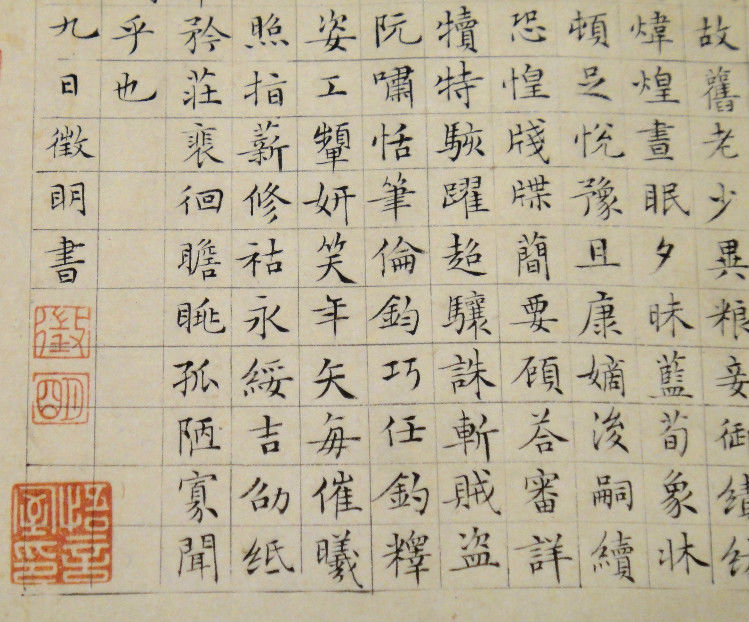 故舊老少異粮妾御績
煒煌晝眠夕昧藍荀象牀
頓足悅豫且康嫡後嗣續
恐惶牋牒簡要顧答審詳
犢特駭躍超驤誅斬賊盜
阮嘯恬筆倫鈞巧任釣釋
姿工顰妍笑年矢每催曦
照指薪修祜永綏吉劭紙
矜莊裴徊瞻眺孤陋寡聞
乎也
九日徵明書
徵
明
悟言室印